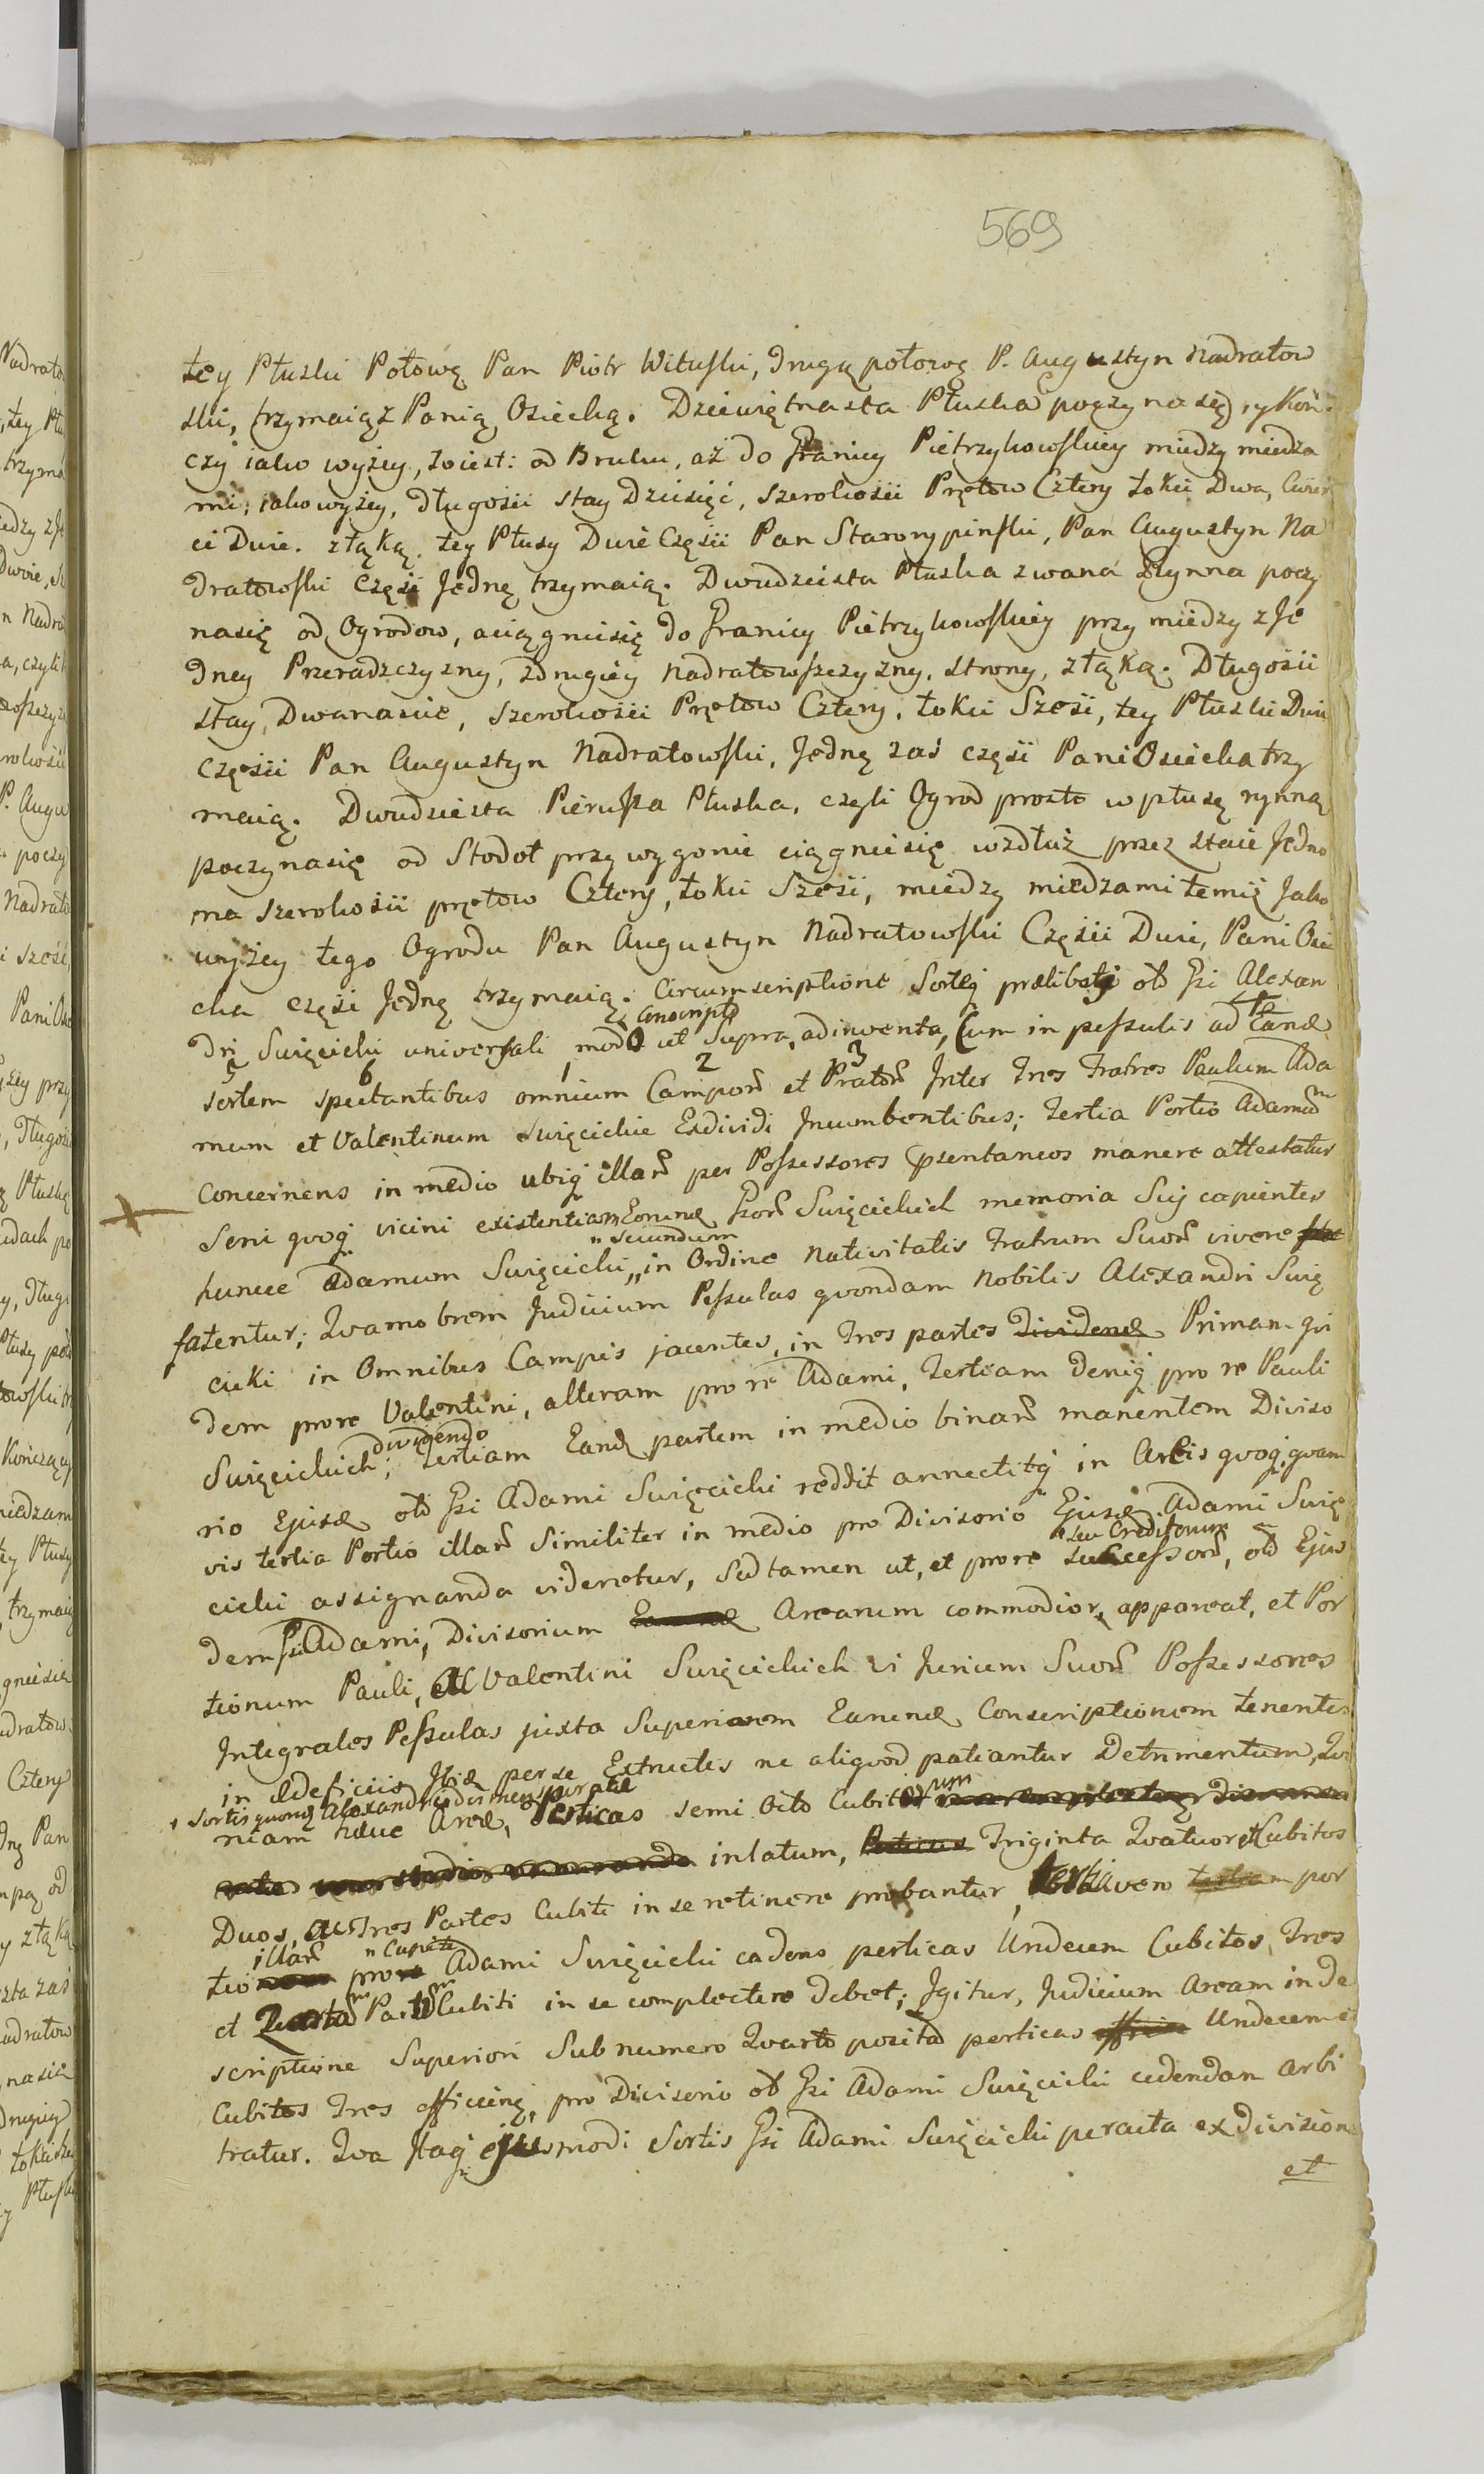 569
tey Płuski Połowę Pan Piotr Wituski, drugą połowę P. Augustyn Nadratow
ski, trzymaią z Panią Osiecką. Dziewiętnasta Płuska poczyna się, y Koń
czy iako wyżey, to iest: od Bruku, aż do Granicy Pietrzykowskiey miedzy miedza
mi, iako wyżey, długości stay Dziesięć, szerokości Prętow Cztery łokci Dwa, Cwier
ci Dwie. z łąką. tey Płusy Dwie Części Pan Starorypinski, Pan Augustyn Na
dratowski Częśc Jednę trzymaią. Dwudziesta Płuska zwana Rynna poczy
nasię od Ogrodow, aciągniesię do Granicy Pietrzykowskiey przy miedzy z Je
dney Przeradzczyzny, z drugiey Nadratowszczyzny, strony, z łąką. Długości
stay, Dwanascie, szerokości Prętow Cztery, łokci Szesc, tey Płuski Dwie
części Pan Augustyn Nadratowski, Jednę zaś częśc Pani Osiecka trzy
maią. Dwudziesta Pierwsza Płuska, czyli Ogrod prosto w płusę rynną
poczynasię od Stodoł przy wygonie ciągniesię wzdłuż przez staie Jedno
ma szerokości prętow Cztery, łokci Szesc, miedzy miedzami temiż Jako
wyżey tego Ogrodu Pan Augustyn Nadratowski Części Dwie, Pani Osie
cka częśc Jednę trzymaią. Circumscriptione Sortis prælibatæ olim Gsi Alexan
dri Swięcicki universali modo ut Supra, adinventa, Cum in pessulis ad Eand
5 6 1 2 3
sortem spectantibus omnium Camporum et Pratorum Inter Tres Fratres Paulum Ada
mum et Valentinum Swięcickie Exdividi Incumbentibus; tertia Portio Adamum
Concernens in medio ubiq illarum per Possessores præsentaneos manere attestatur
Seni quoq vicini existentiam Eorund Gsorum Swięcickich memoria Suy capientes
"secundum
hunce Adamum Swięcicki,, in Ordine Nativitatis Fratrum Suorum vivere
fatentur; Quamobrem Judicium Pessulas quondam Nobilis Alexandri Swię
cicki in Omnibus Campis jacentes, in Tres partes Dividend Primam qui
dem pro re Valentini, alteram pro re Adami, Tertiam deniq pro re Pauli
dividendo
Swięcickich; Tertiam Eand partem in medio binarum manentem Diviso
rio Ejusd olim Gsi Adami Swięcicki reddit annectitq in Areis quoq, quam
vis tertia Portio illarum Similiter in medio pro Divisorio Ejusd Adami Swię
"seu Creditorum
cicki assignanda videretur, Sed tamen ut, et pro re Successorum, olim Ejus
dem Gsi Adami, Divisorium Arearum commodior appareat, et Por
tionum Pauli, et Valentini Swięcickich vi Jurium Suorum Possessores
Integrales Pessulas juxta Superiorem Earund Conscriptionem tenentes
in Ædificiis Ibid per se Extructis ne aliquod patiantur Detrimentum, Quo
niam Areæ, Perticas semi octo Cubit
inlatum, Triginta Quatuor et Cubitos
Duos, ac Tres Partes Cubiti in se retinere probantur, tertia vero por
illarum "Capiti
tio Adami Swięcicki cadens perticas Undecem Cubitos, Tres
et Quartam Partem Cubiti in se complectere debet; Igitur, Judicium Aream in de
scriptione Superiori Sub numero Quarto posita perticas Undecem et
Cubitos Tres efficieng, pro Divisorio olim Gsi Adami Swięcicki cedendam arbi
tratur. Qua Itaq ejusmodi Sortis Gsi Adami Swięcicki peracta exdivision
et